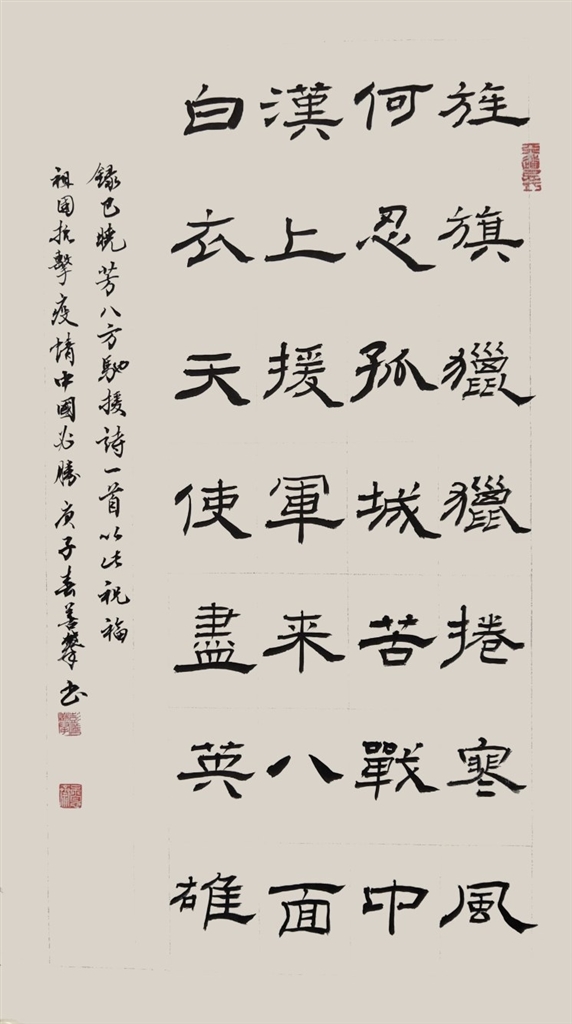 旌旗獵獵捲寒風
何忍孤城苦戰中
漢上援軍来八面
白衣天使盡英雄
錄巴曉芳八方馳援詩一首以此祝福
祖国抗擊疫情中國必勝庚子春善攀书